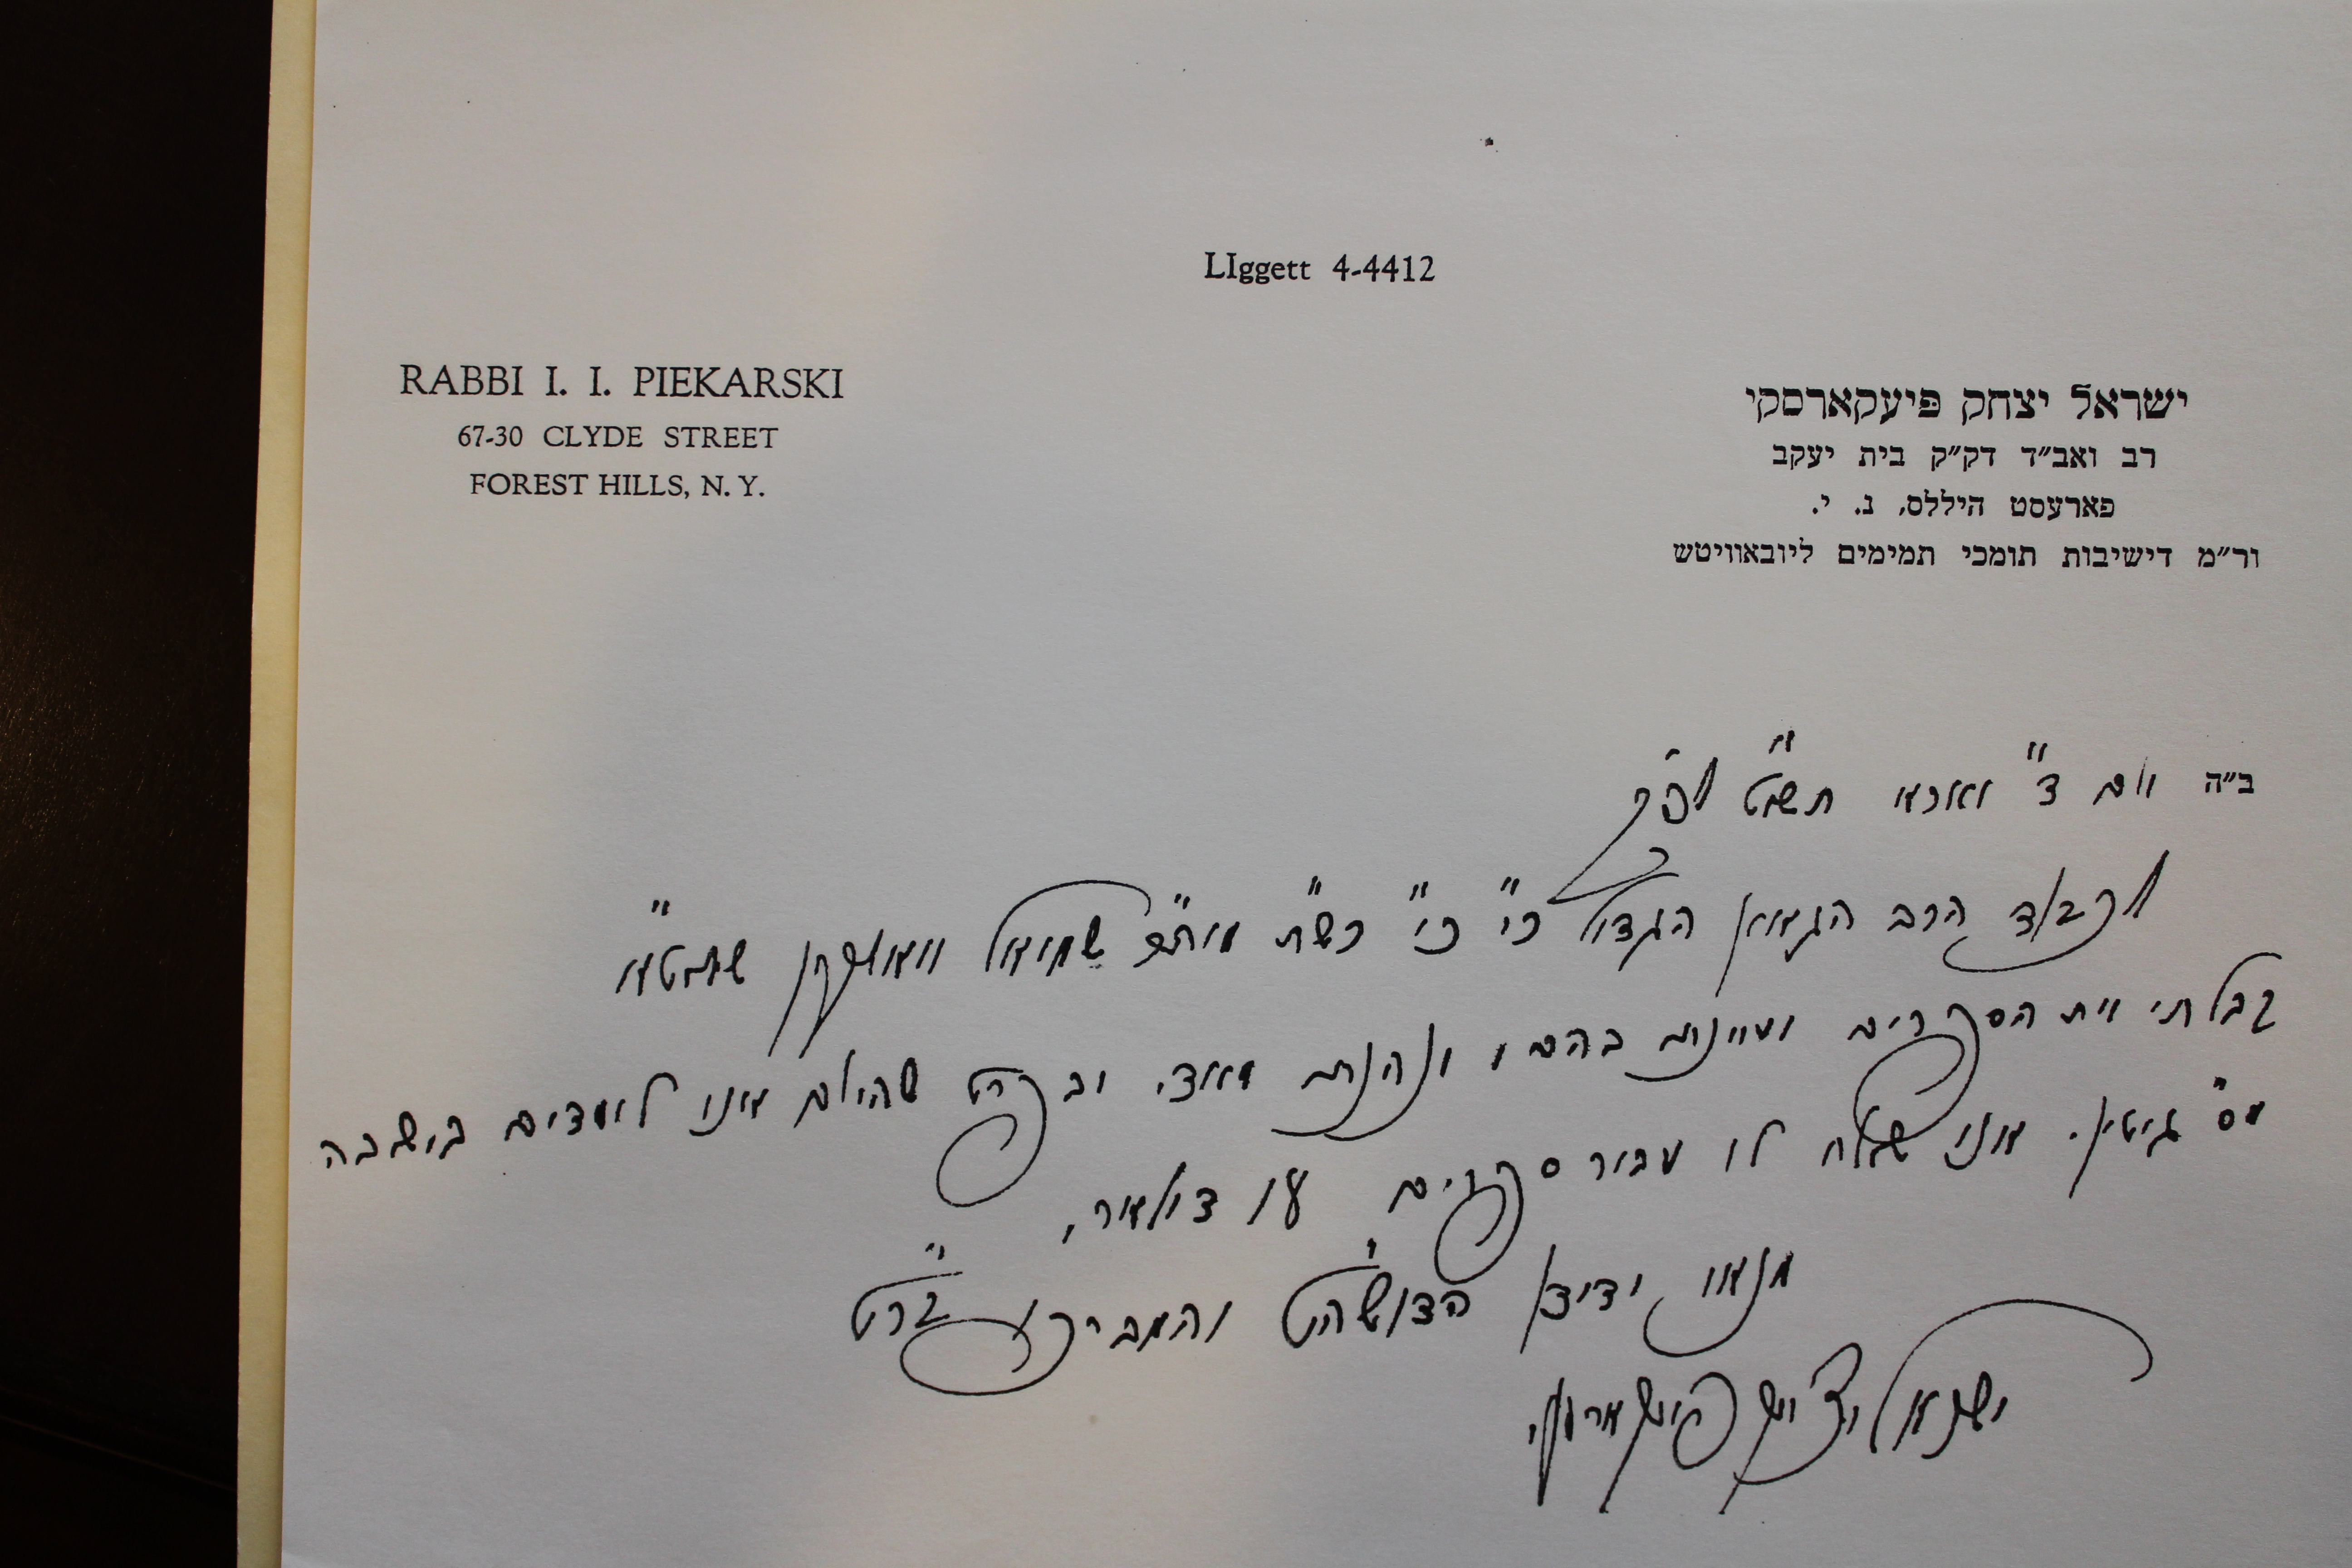 LIggett 4-4412
RABBI I. I. PIEKARSKI
67-30 CLYDE STREET
FOREST HILLS, N. Y.
ישראל יצחק פיעקארסקי
רב ואב״ד דק״ק בית יעקב
פארעסט היללס, נ. י.
ור״מ דישיבות תומכי תמימים ליובאוויטש
ב״ה יום ד״ וארא תשט״ לפ״ק
לכבוד הרב הגאון הגדול כי״ כו״ כש״ת מוה״ר שמואל וואלקין שליט״א
קבלתי את הספרים ועיינתי בהם ונהנתי מאוד, ובפרט שהיום אנו לומדים בישיבה
מס״ גיטין. אנו שולח לו עבור ספרים דולאר,
ממנו ידידו הדוש״ט והמברכו
ישראל יצחק פיעקארסקי